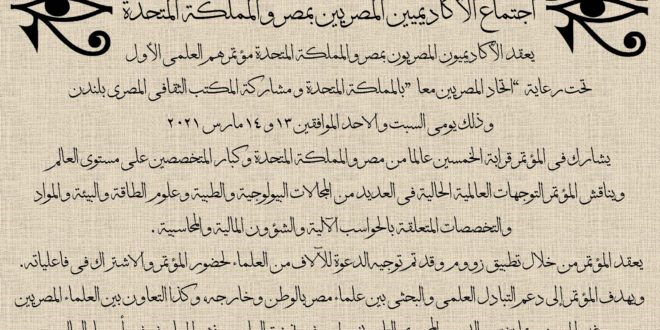 اجتماع الأكاديميين المصريين بمصر والمملكة المتحدة
يعقد الأكاديميون المصريون بمصر والمملكة المتحدة مؤتمرهم العلمى الأول
تحت رعاية “اتحاد المصريين معا ”بالمملكة المتحدة و مشاركة المكتب الثقافى المصرى بلندن
وذلك يومى السبت والاحد الموافقين ١٣ و ١٤ مارس ٢٠٢١
يشارك فى المؤتمر قرابة الخمسين عالما من مصر والمملكة المتحدة وكبار المتخصصين على مستوى العالم
ويناقش المؤتمر التوجهات العالمية الحالية فى العديد من المجالات البيولوجية والطبية وعلوم الطاقة والبيئة والمواد
والتخصصات المتعلقة بالحواسب الآلية والشؤون المالية والمحاسبية .
يعقد المؤتمر من خلال تطبيق زووم وقد تم توجيه الدعوة للآلاف من العلماء لحضور المؤتمر والاشتراك فى فاعلياته.
ويهدف المؤتمر إلى دعم التبادل العلمى والبحثى بين علماء مصر بالوطن وخارجه، وكذا التعاون بين العلماء المصريين